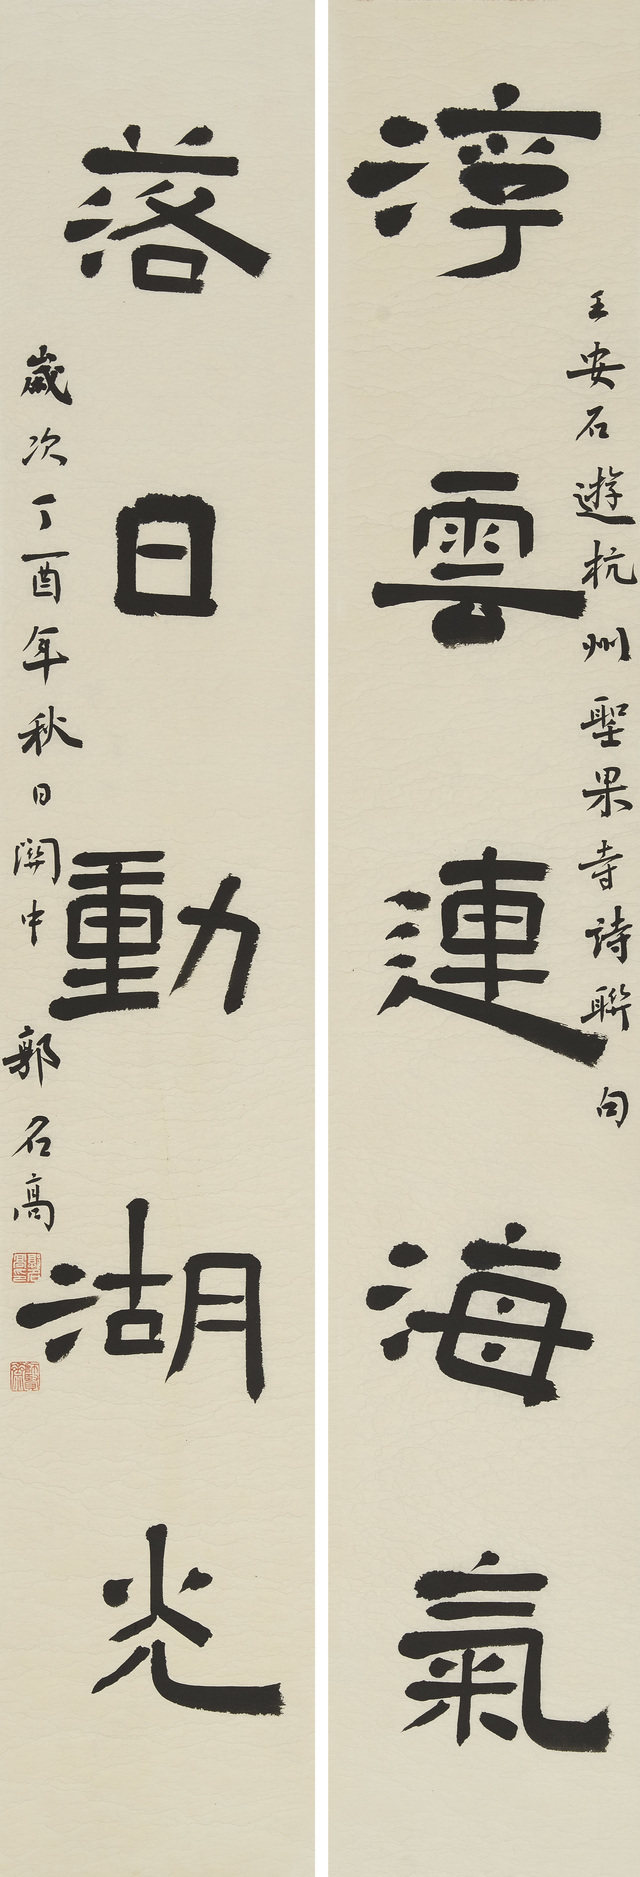 浮雲連海氣
王安石遊杭州聖果寺詩聯句
落日動湖光
歲次丁酉年秋日關中郭名高